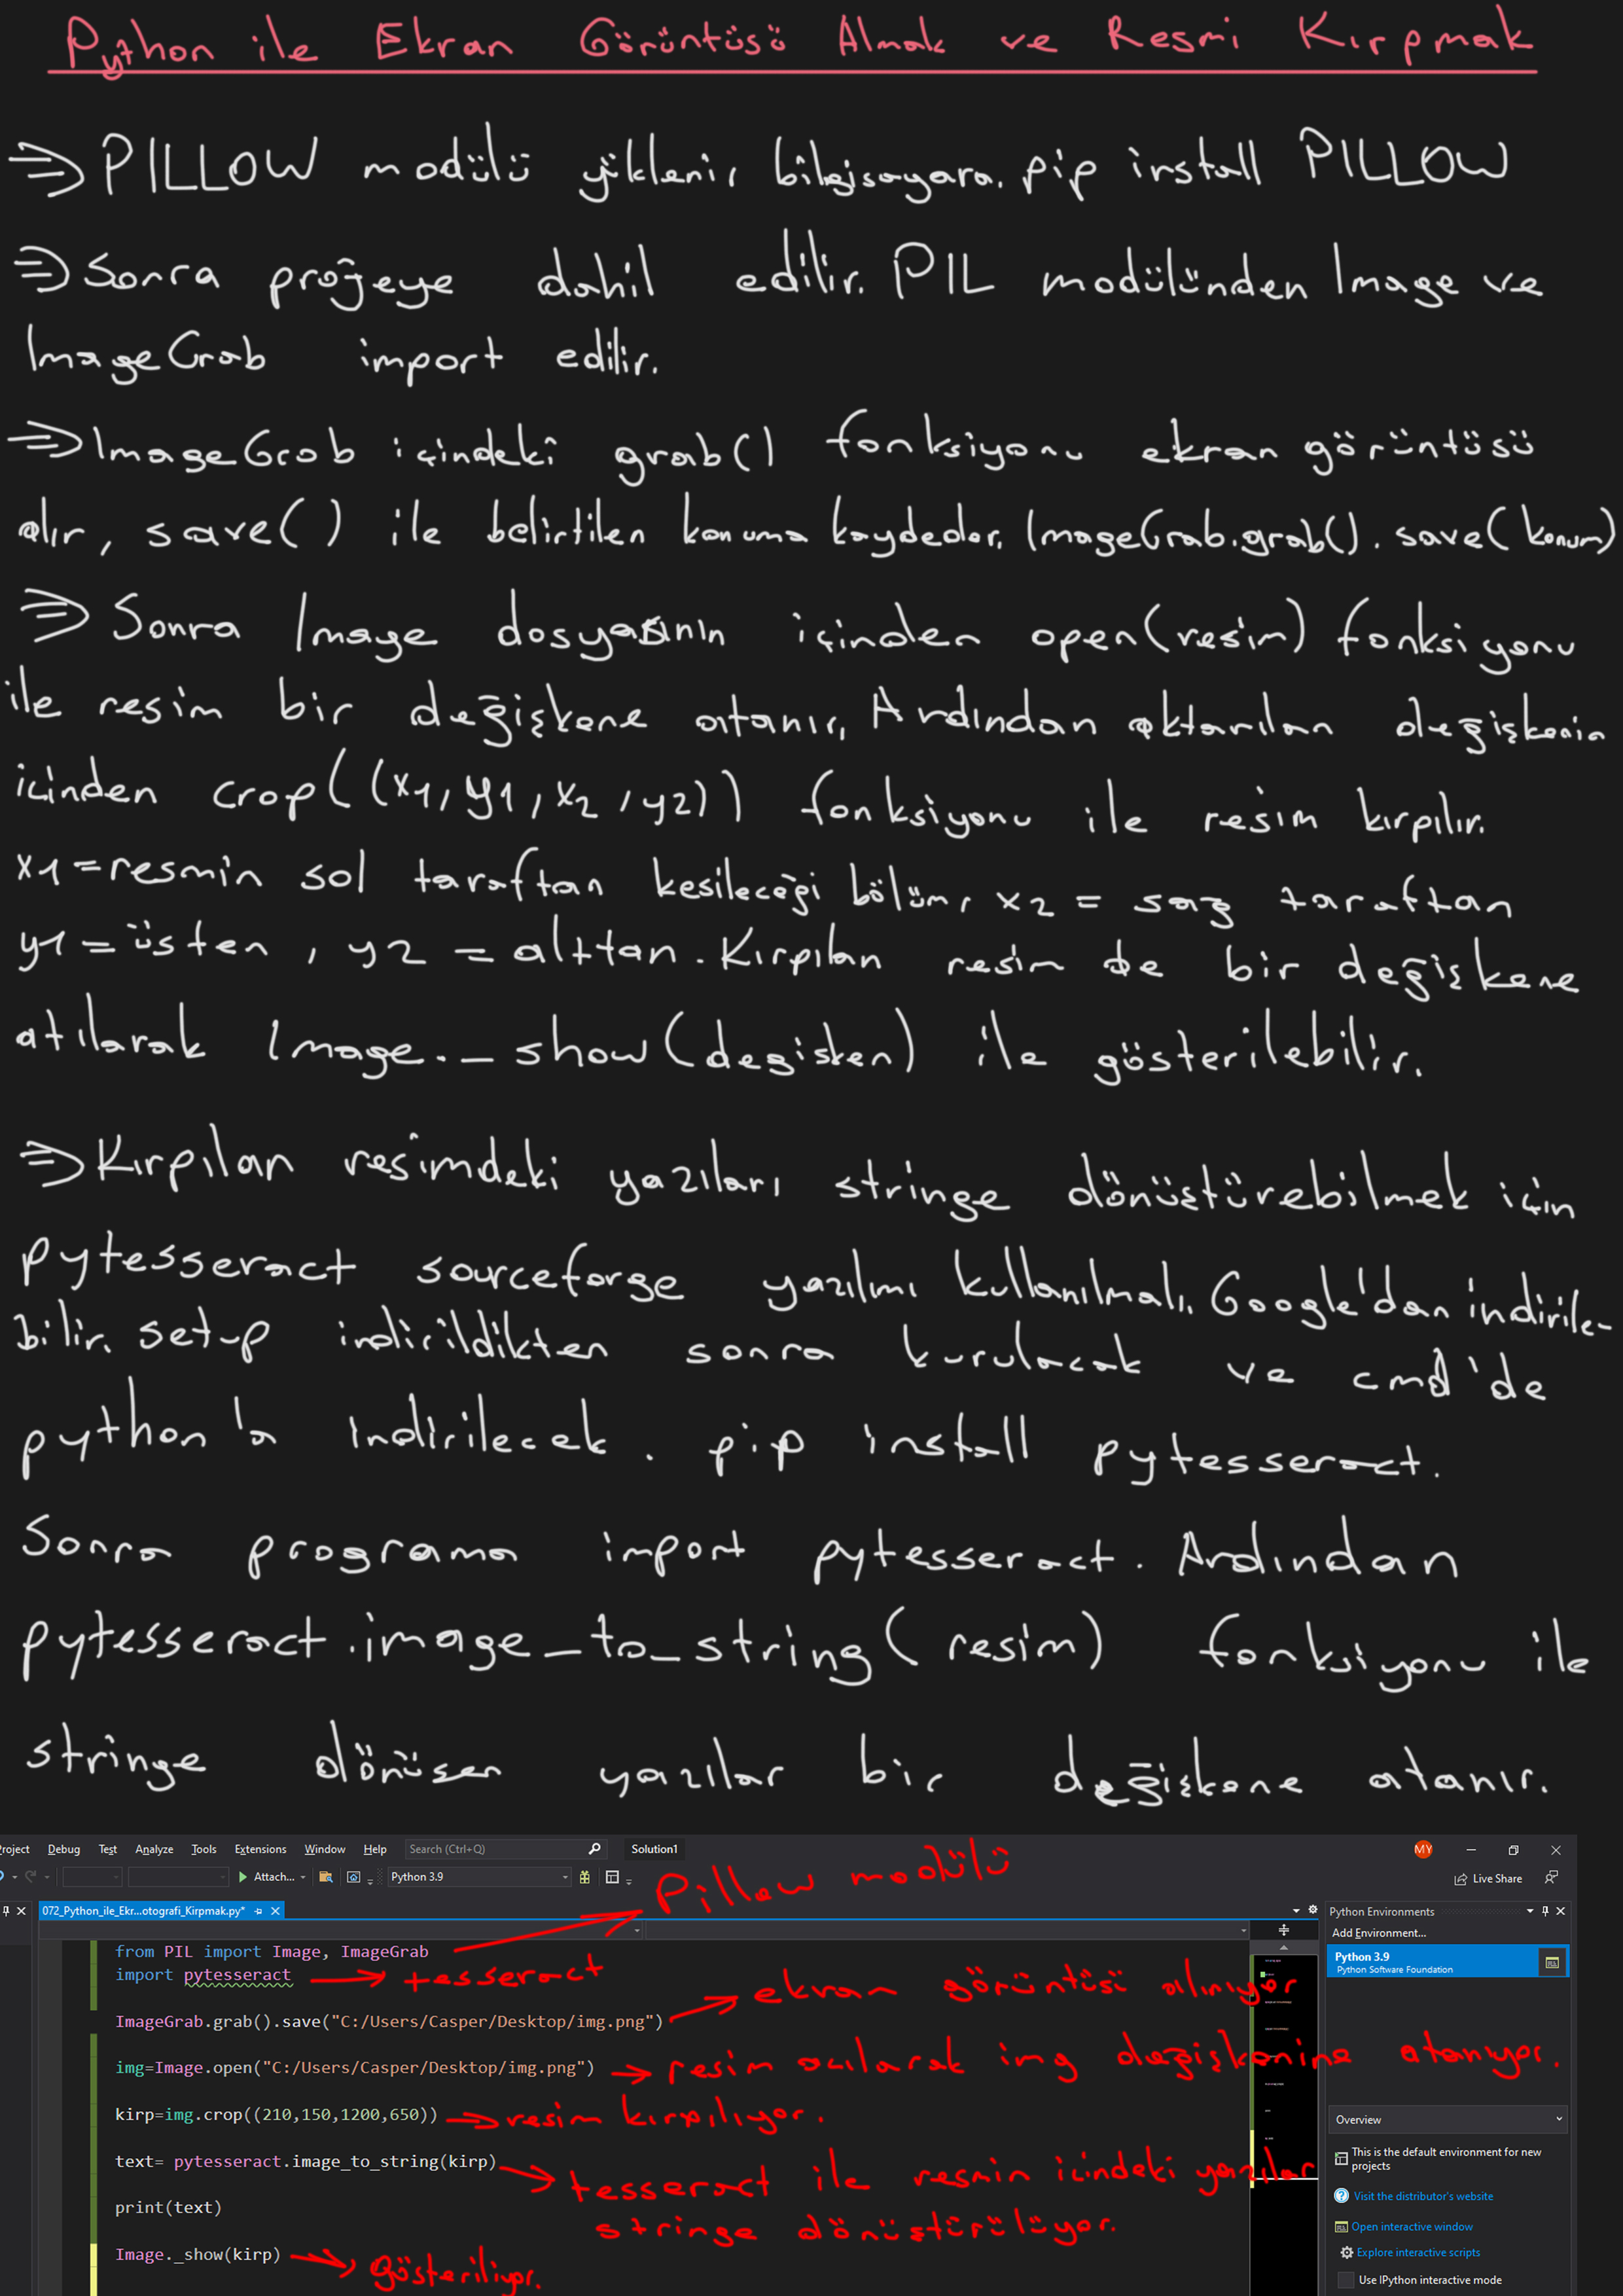 Python ile Ekran Görüntüsü Almak ve Resmi Kırpmak
⇒ PILLOW modülü yüklenir bilgisayara. pip install PILLOW
⇒ Sonra projeye dahil edilir. PIL modülünden Image ve
ImageGrab import edilir.
⇒ ImageGrab içindeki grab() fonksiyonu ekran görüntüsü
alır, save() ile belirtilen konuma kaydeder. ImageGrab.grab().save(konum)
⇒ Sonra Image dosyasının içinden open(resim) fonksiyonu
ile resim bir değişkene atanır. Ardından aktarılan değişkenin
içinden crop((x1,y1,x2,y2)) fonksiyonu ile resim kırpılır.
x1=resmin sol taraftan kesileceği bölüm, x2 = sağ taraftan
y1=üsten, y2 = alttan. Kırpılan resim de bir değişkene
atılarak Image._show(degisken) ile gösterilebilir.
⇒ Kırpılan resimdeki yazıları stringe dönüştürebilmek için
pytesseract sourceforge yazılımı kullanılmalı. Google'dan indirile-
bilir. set-up indirildikten sonra kurulacak ve cmd'de
python'a indirilecek. pip install pytesseract.
Sonra programa import pytesseract. Ardından
pytesseract.image_to_string(resim) fonksiyonu ile
stringe dönüsen yazılar bir değişkene atanır.
roject Debug Test Analyze Tools Extensions Window Help Search (Ctrl+Q) Solution1 MY
Attach... Python 3.9 Live Share
Pillow modülü
072_Python_ile_Ekr...otografi_Kirpmak.py* Python Environments
Add Environment...
from PIL import Image, ImageGrab
Python 3.9
Python Software Foundation
import pytesseract → tesseract
ImageGrab.grab().save("C:/Users/Casper/Desktop/img.png") → ekran görüntüsü alınıyor
img=Image.open("C:/Users/Casper/Desktop/img.png") → resim acılarak img değişkenine atanıyor.
kirp=img.crop((210,150,1200,650)) → resim kırpılıyor.
Overview
text= pytesseract.image_to_string(kirp) → tesseract ile resmin icindeki yazılar
stringe dönüştürülüyor.
This is the default environment for new
projects
print(text)
Visit the distributor's website
Open interactive window
Image._show(kirp) → gösteriliyor.
Explore interactive scripts
Use IPython interactive mode